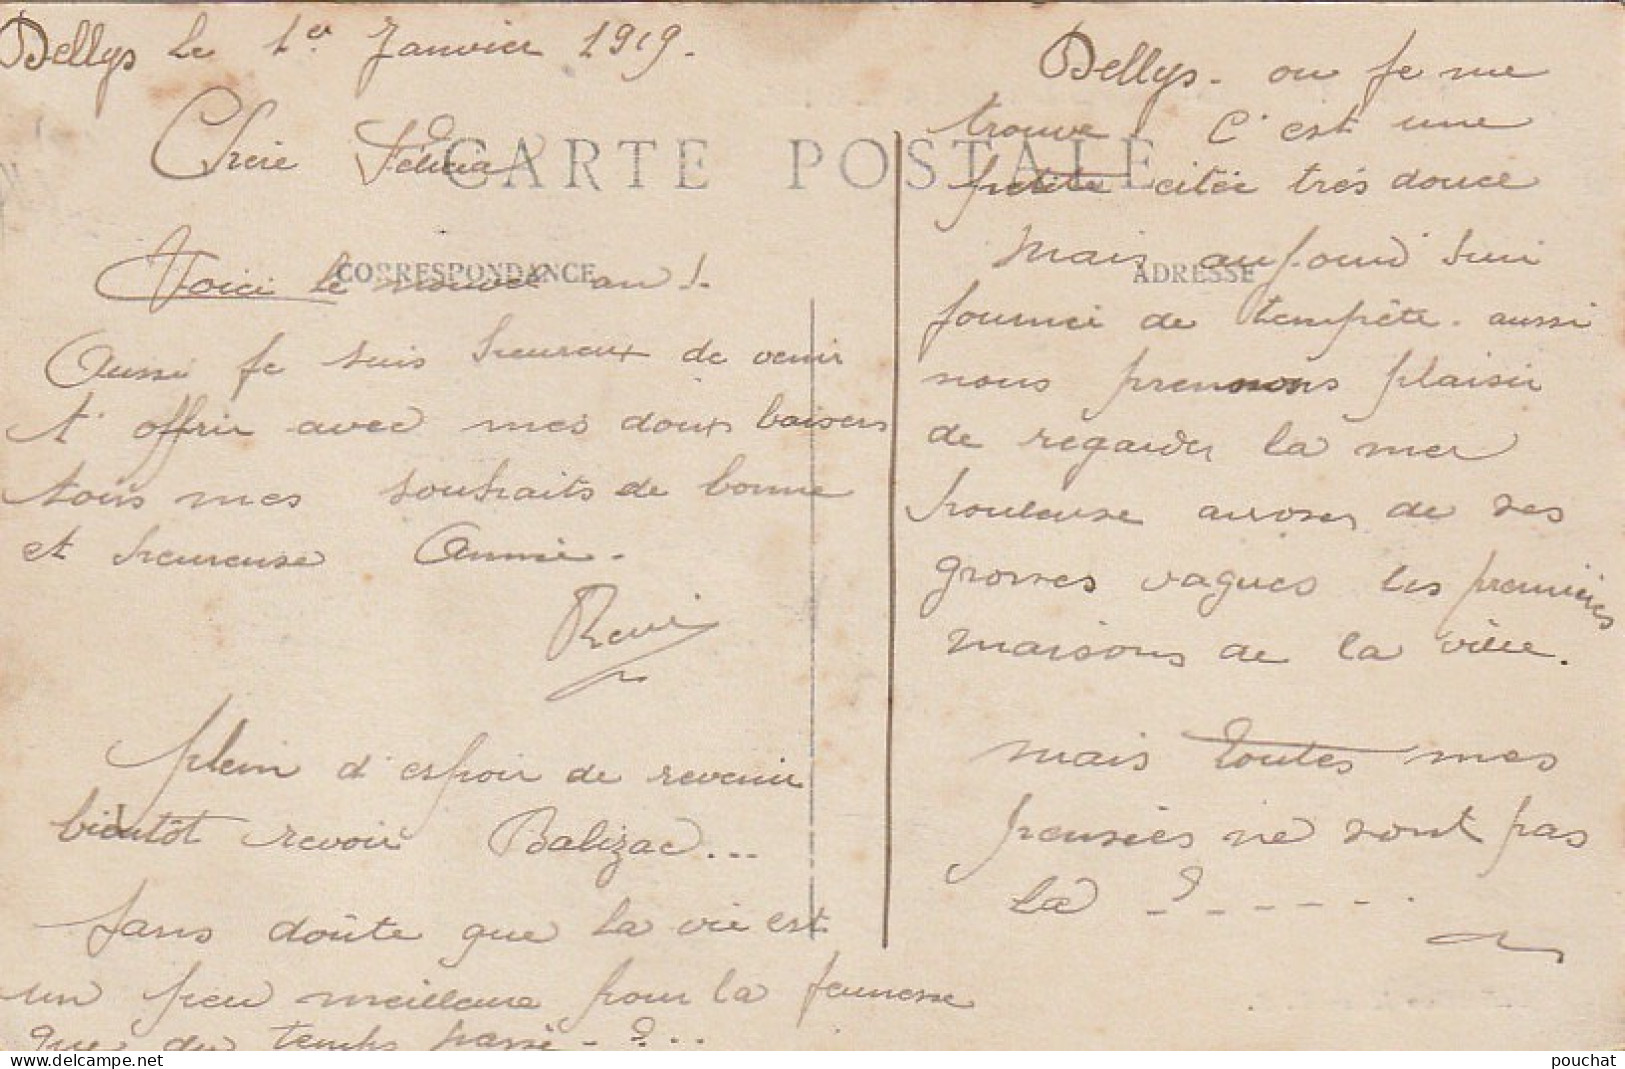 Dellys le 1er Janvier 1919.
Chère Félicia
CARTE POSTALE
CORRESPONDANCE
Voici le nouvel an !.
Aussi je suis heureux de venir
t'offrir avec mes doux baisers
tous mes souhaits de bonne
et heureuse Année.
René
plein d'espoir de revenir
bientôt revoir Balizac...
Sans doûte que la vie est
un peu meilleure pour la jeunesse
que du temps passé - ? ...
ADRESSE
Dellys. ou je me
trouve. C'est une
petite citée très douce
Mais aujourd'hui
journée de tempête. aussi
nous prennons plaisir
de regarder la mer
houleuse arroser de ses
grosses vagues les premières
maisons de la ville.
mais toutes mes
pensées ne sont pas
là - ? - - - - - .
pouchat
delcampe.net